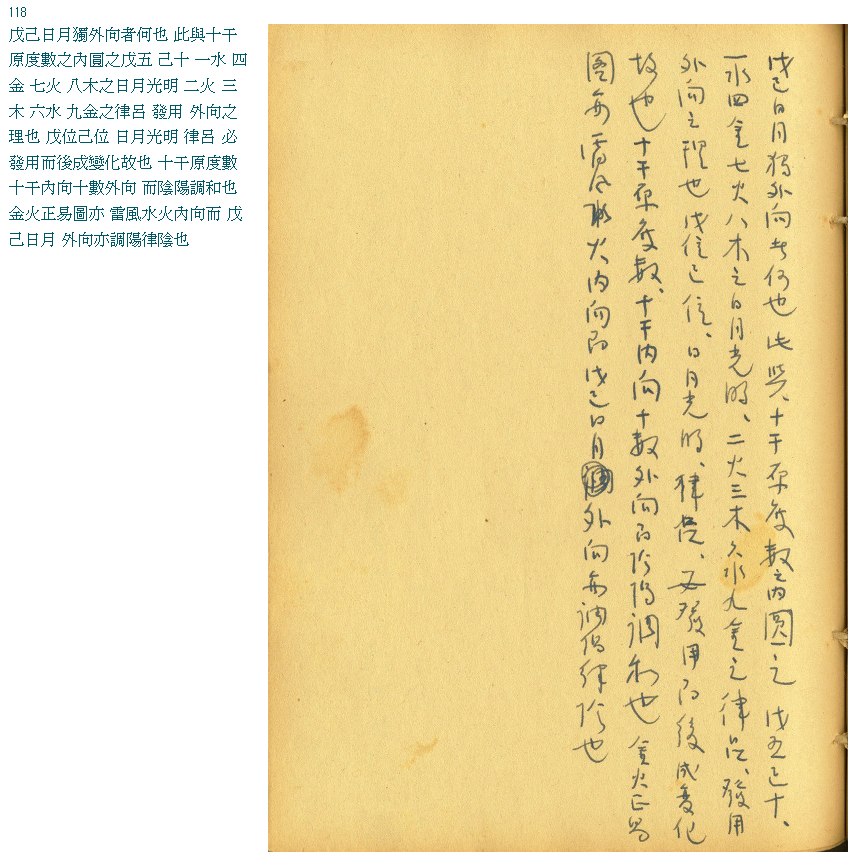 118
戊己日月獨外向者何也 此與十干
原度數之內圓之戊五 己十 一水 四
金 七火 八木之日月光明 二火 三
木 六水 九金之律呂 發用 外向之
理也 戊位己位 日月光明 律呂 必
發用而後成變化故也 十干原度數
十干內向十數外向 而陰陽調和也
金火正易圖亦 雷風水火內向而 戊
己日月 外向亦調陽律陰也
戊己日月獨外向者何也 此與、十干原度數之內圓之 戊五己十、
一水四金七火八木之日月光明、二火三木六水九金之律呂、發用
外向之理也 戊位己位、日月光明、律呂、必發用而後成變化
故也 十干原度數、十干內向十數外向而陰陽調和也 金火正易
圖亦雷風水火內向而戊己日月外向亦調陽律陰也